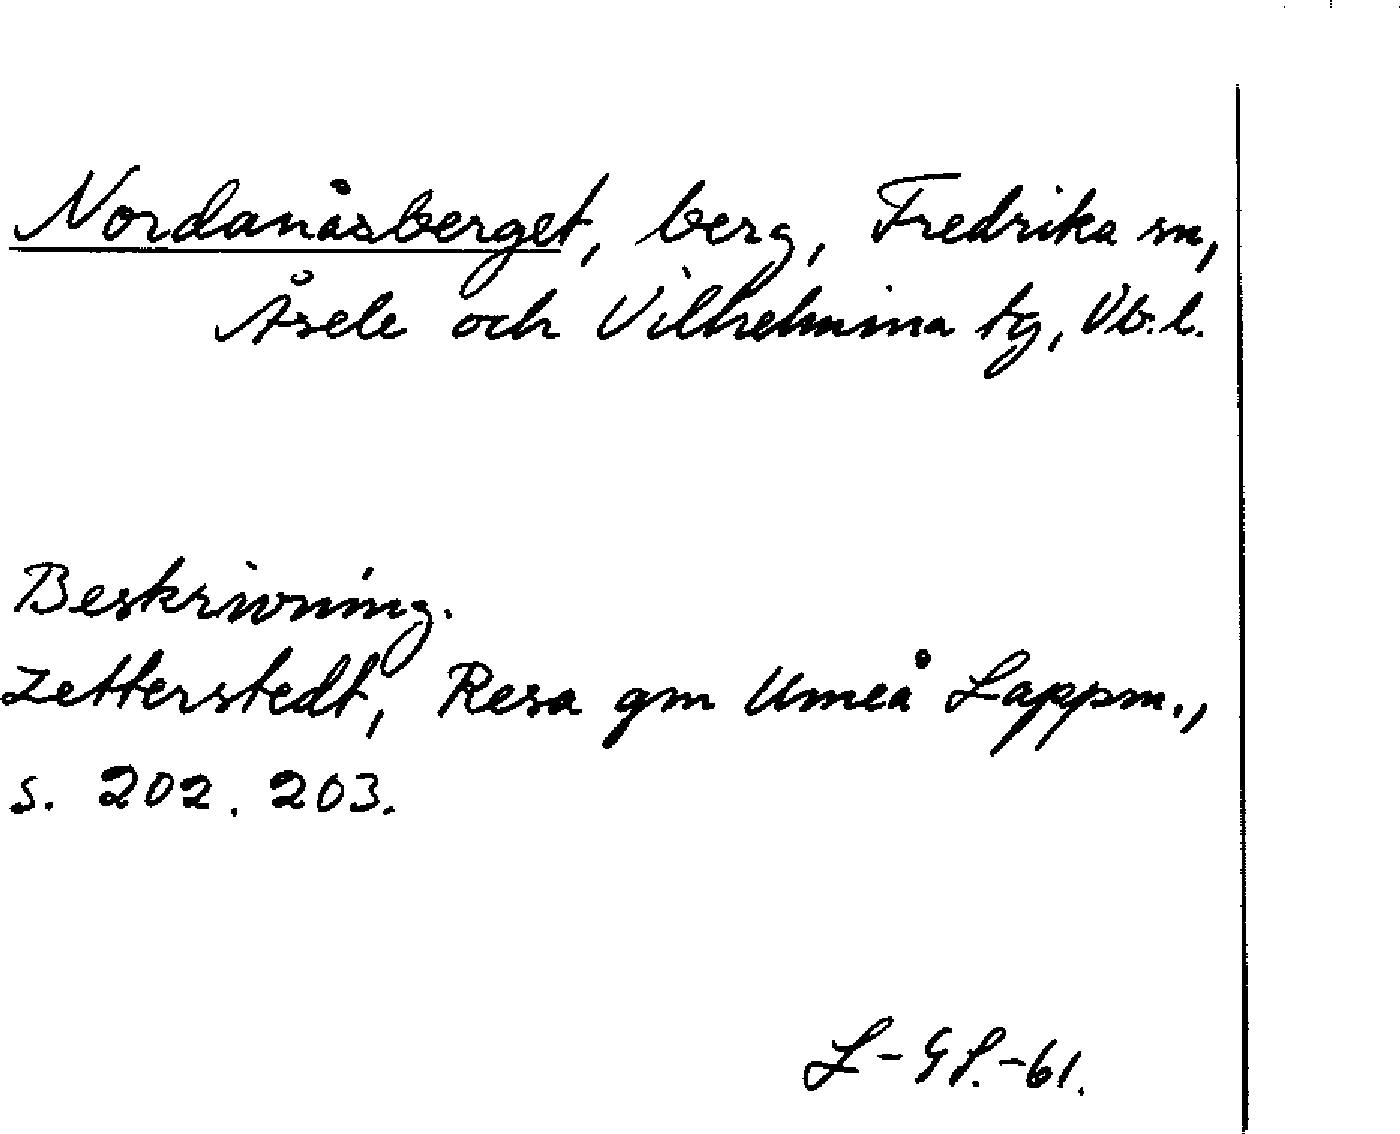 Nordanåsberget, berg, Fredrika sn,
Åsele och Vilhelmina tg, Vb. l.
Beskrivning.
Zetterstedt, Resa gm Umeå Lappm.,
s. 202. 203.
L-GS.-61.